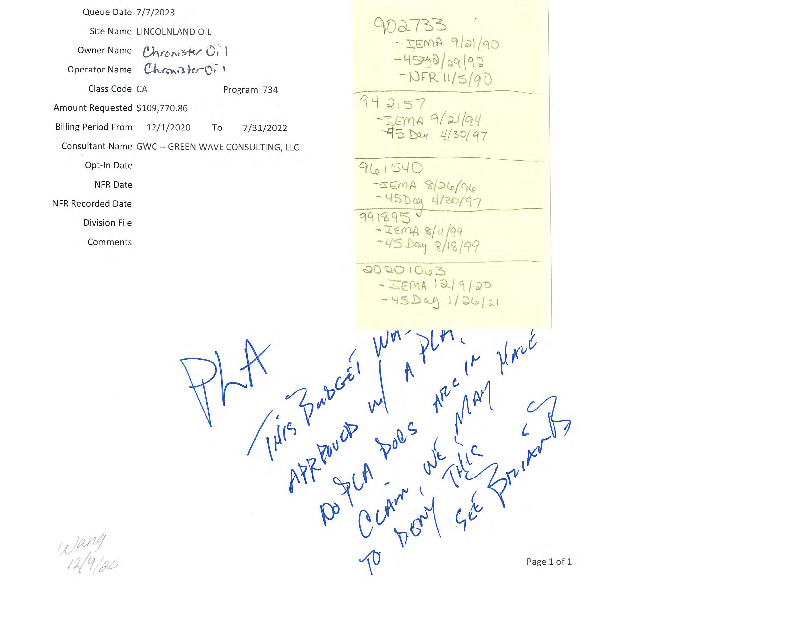 Queue Date 7/7/2023
Site Name LINCOLNLAND OIL
Owner Name Chronister Oil
Operator Name Chronister Oil
Class Code CA Program 734
Amount Requested $109,770.86
Billing Period From 12/1/2020 To 7/31/2022
Consultant Name GWC -- GREEN WAVE CONSULTING, LLC
Opt-In Date
NFR Date
NFR Recorded Date
Division File
Comments
902733
- IEMA 9/21/90
- 45 /29/92
- NFR 11/5/90
942157
- IEMA 9/21/94
- 45 Day 4/30/97
961540
- IEMA 8/26/96
- 45 Day 4/30/97
991895
- IEMA 8/11/99
- 45 Day 8/18/99
20201063
- IEMA 12/9/20
- 45 Day 1/26/21
PLA
THIS BUDGET WA
APPROVED W/ A PLA.
NO PLA DOCS ARE IN
CLAIM, WE MAY HAVE
TO DENY THIS
SEE BRIAN B
Wang
12/9/20
Page 1 of 1